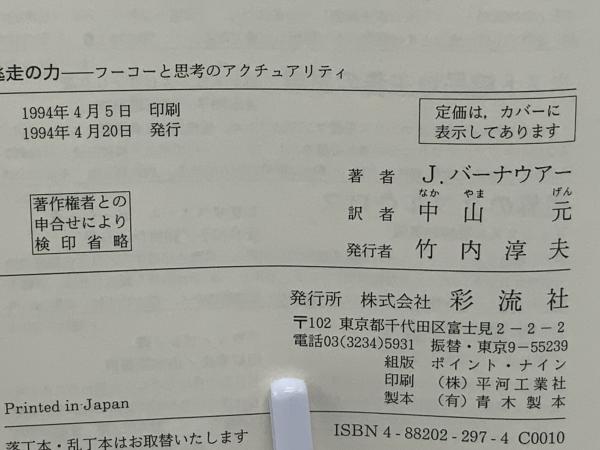 逃走の力――フーコーと思考のアクチュアリティ
1994年4月5日 印刷
1994年4月20日 発行
定価は，カバーに
表示してあります
著者 J.バーナウアー
なか やま げん
訳者 中山 元
発行者 竹内淳夫
著作権者との
申合せにより
検印省略
発行所 株式会社 彩流社
〒102 東京都千代田区富士見2-2-2
電話03(3234)5931 振替・東京9-55239
組版 ポイント・ナイン
印刷 (株)平河工業社
製本 (有)青木製本
Printed in Japan
落丁本・乱丁本はお取替いたします
ISBN 4-88202-297-4 C0010